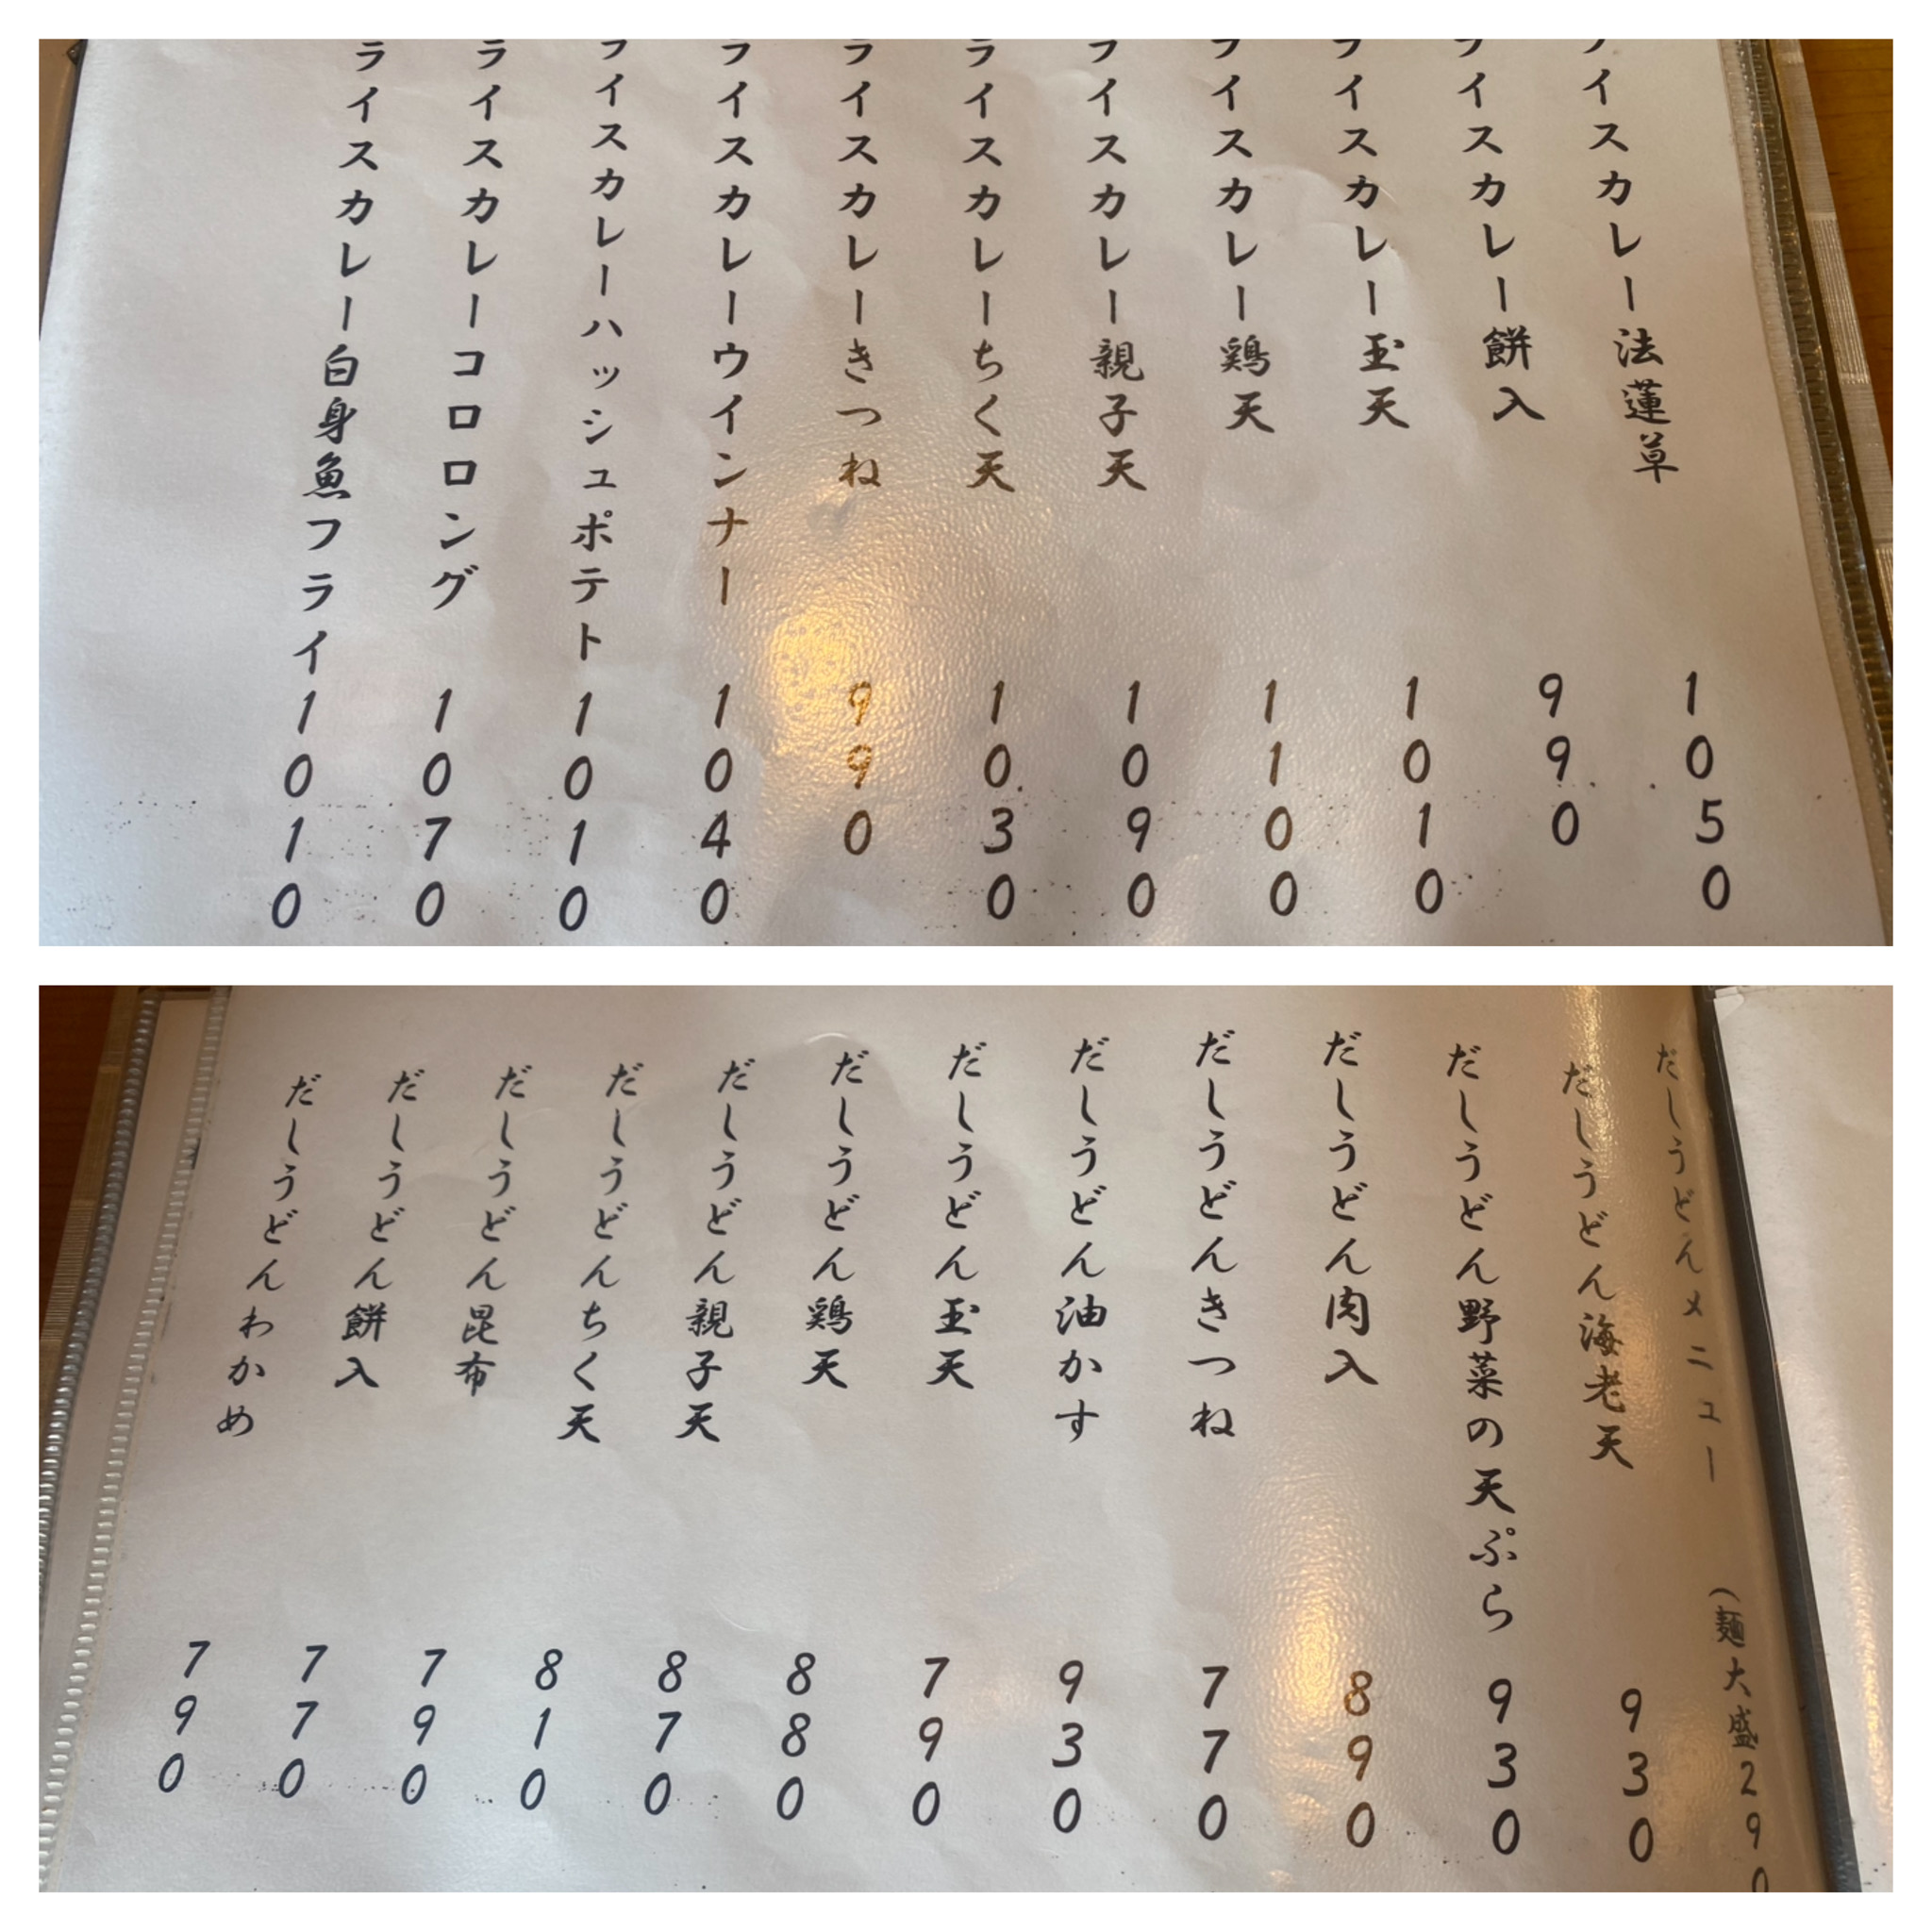 ライスカレー法蓮草 1050
ライスカレー餅入 990
ライスカレー玉天 1010
ライスカレー鶏天 1100
ライスカレー親子天 1090
ライスカレーちく天 1030
ライスカレーきつね 990
ライスカレーウインナー 1040
ライスカレーハッシュポテト 1010
ライスカレーコロロング 1070
ライスカレー白身魚フライ 1010
だしうどんメニュー (麺大盛290
だしうどん海老天 930
だしうどん野菜の天ぷら 930
だしうどん肉入 890
だしうどんきつね 770
だしうどん油かす 930
だしうどん玉天 790
だしうどん鶏天 880
だしうどん親子天 870
だしうどんちく天 810
だしうどん昆布 790
だしうどん餅入 770
だしうどんわかめ 790